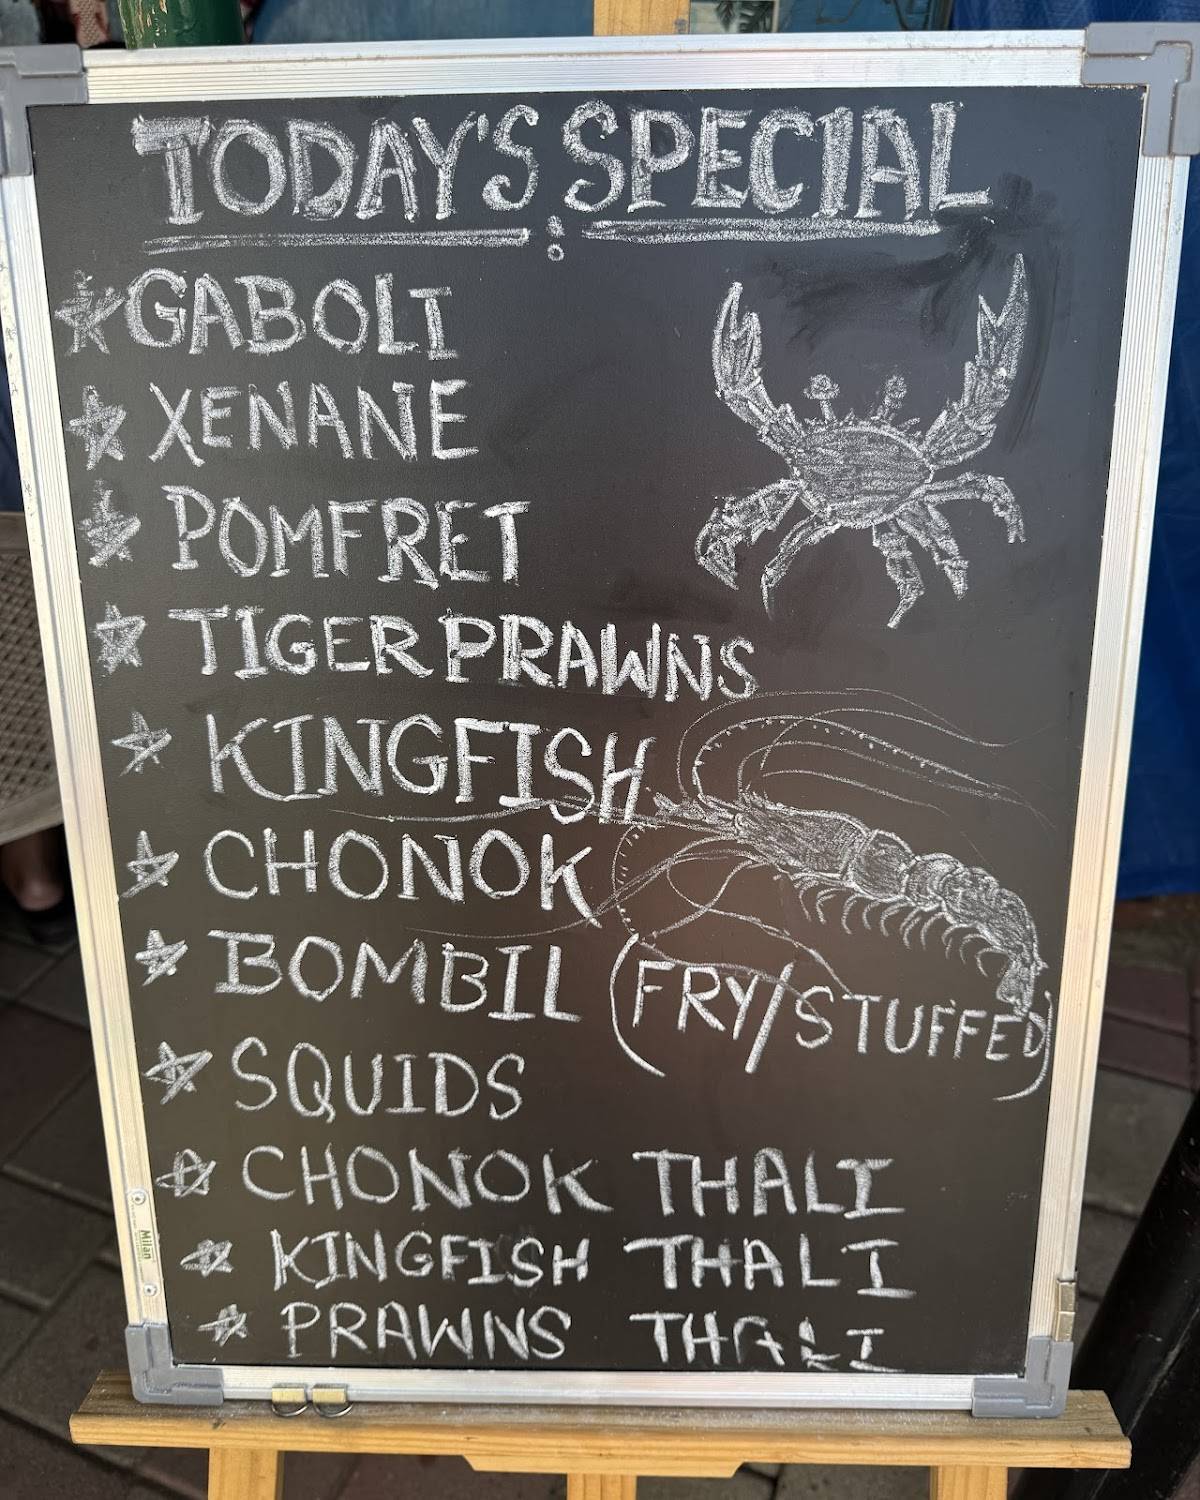 TODAY'S SPECIAL
GABOLI
XENANE
POMFRET
TIGER PRAWNS
KINGFISH
CHONOK
BOMBIL (FRY/STUFFED)
SQUIDS
CHONOK THALI
KINGFISH THALI
PRAWNS THALI
Milan